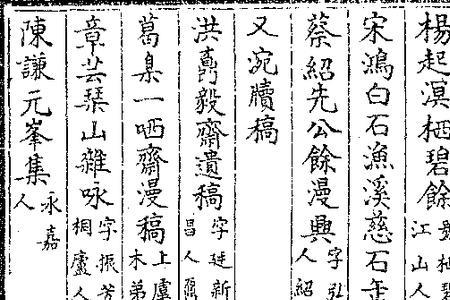 楊起溟栖碧餘 號栖碧 江山人
宋鴻白石漁溪慈石年
蔡紹先公餘漫興 字弘 人紹
又宛牘稿
洪毅齋遺稿 字廷新 昌人
葛臬一哂齋漫稿 上虞 木弟
章芸琹山雜咏 字振芳 桐廬人
陳謙元峯集 永嘉人